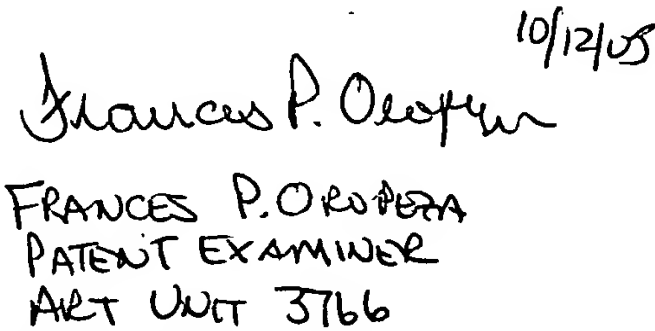 10/12/05
Frances P. Oropeza
FRANCES P. OROPEZA
PATENT EXAMINER
ART UNIT 3766